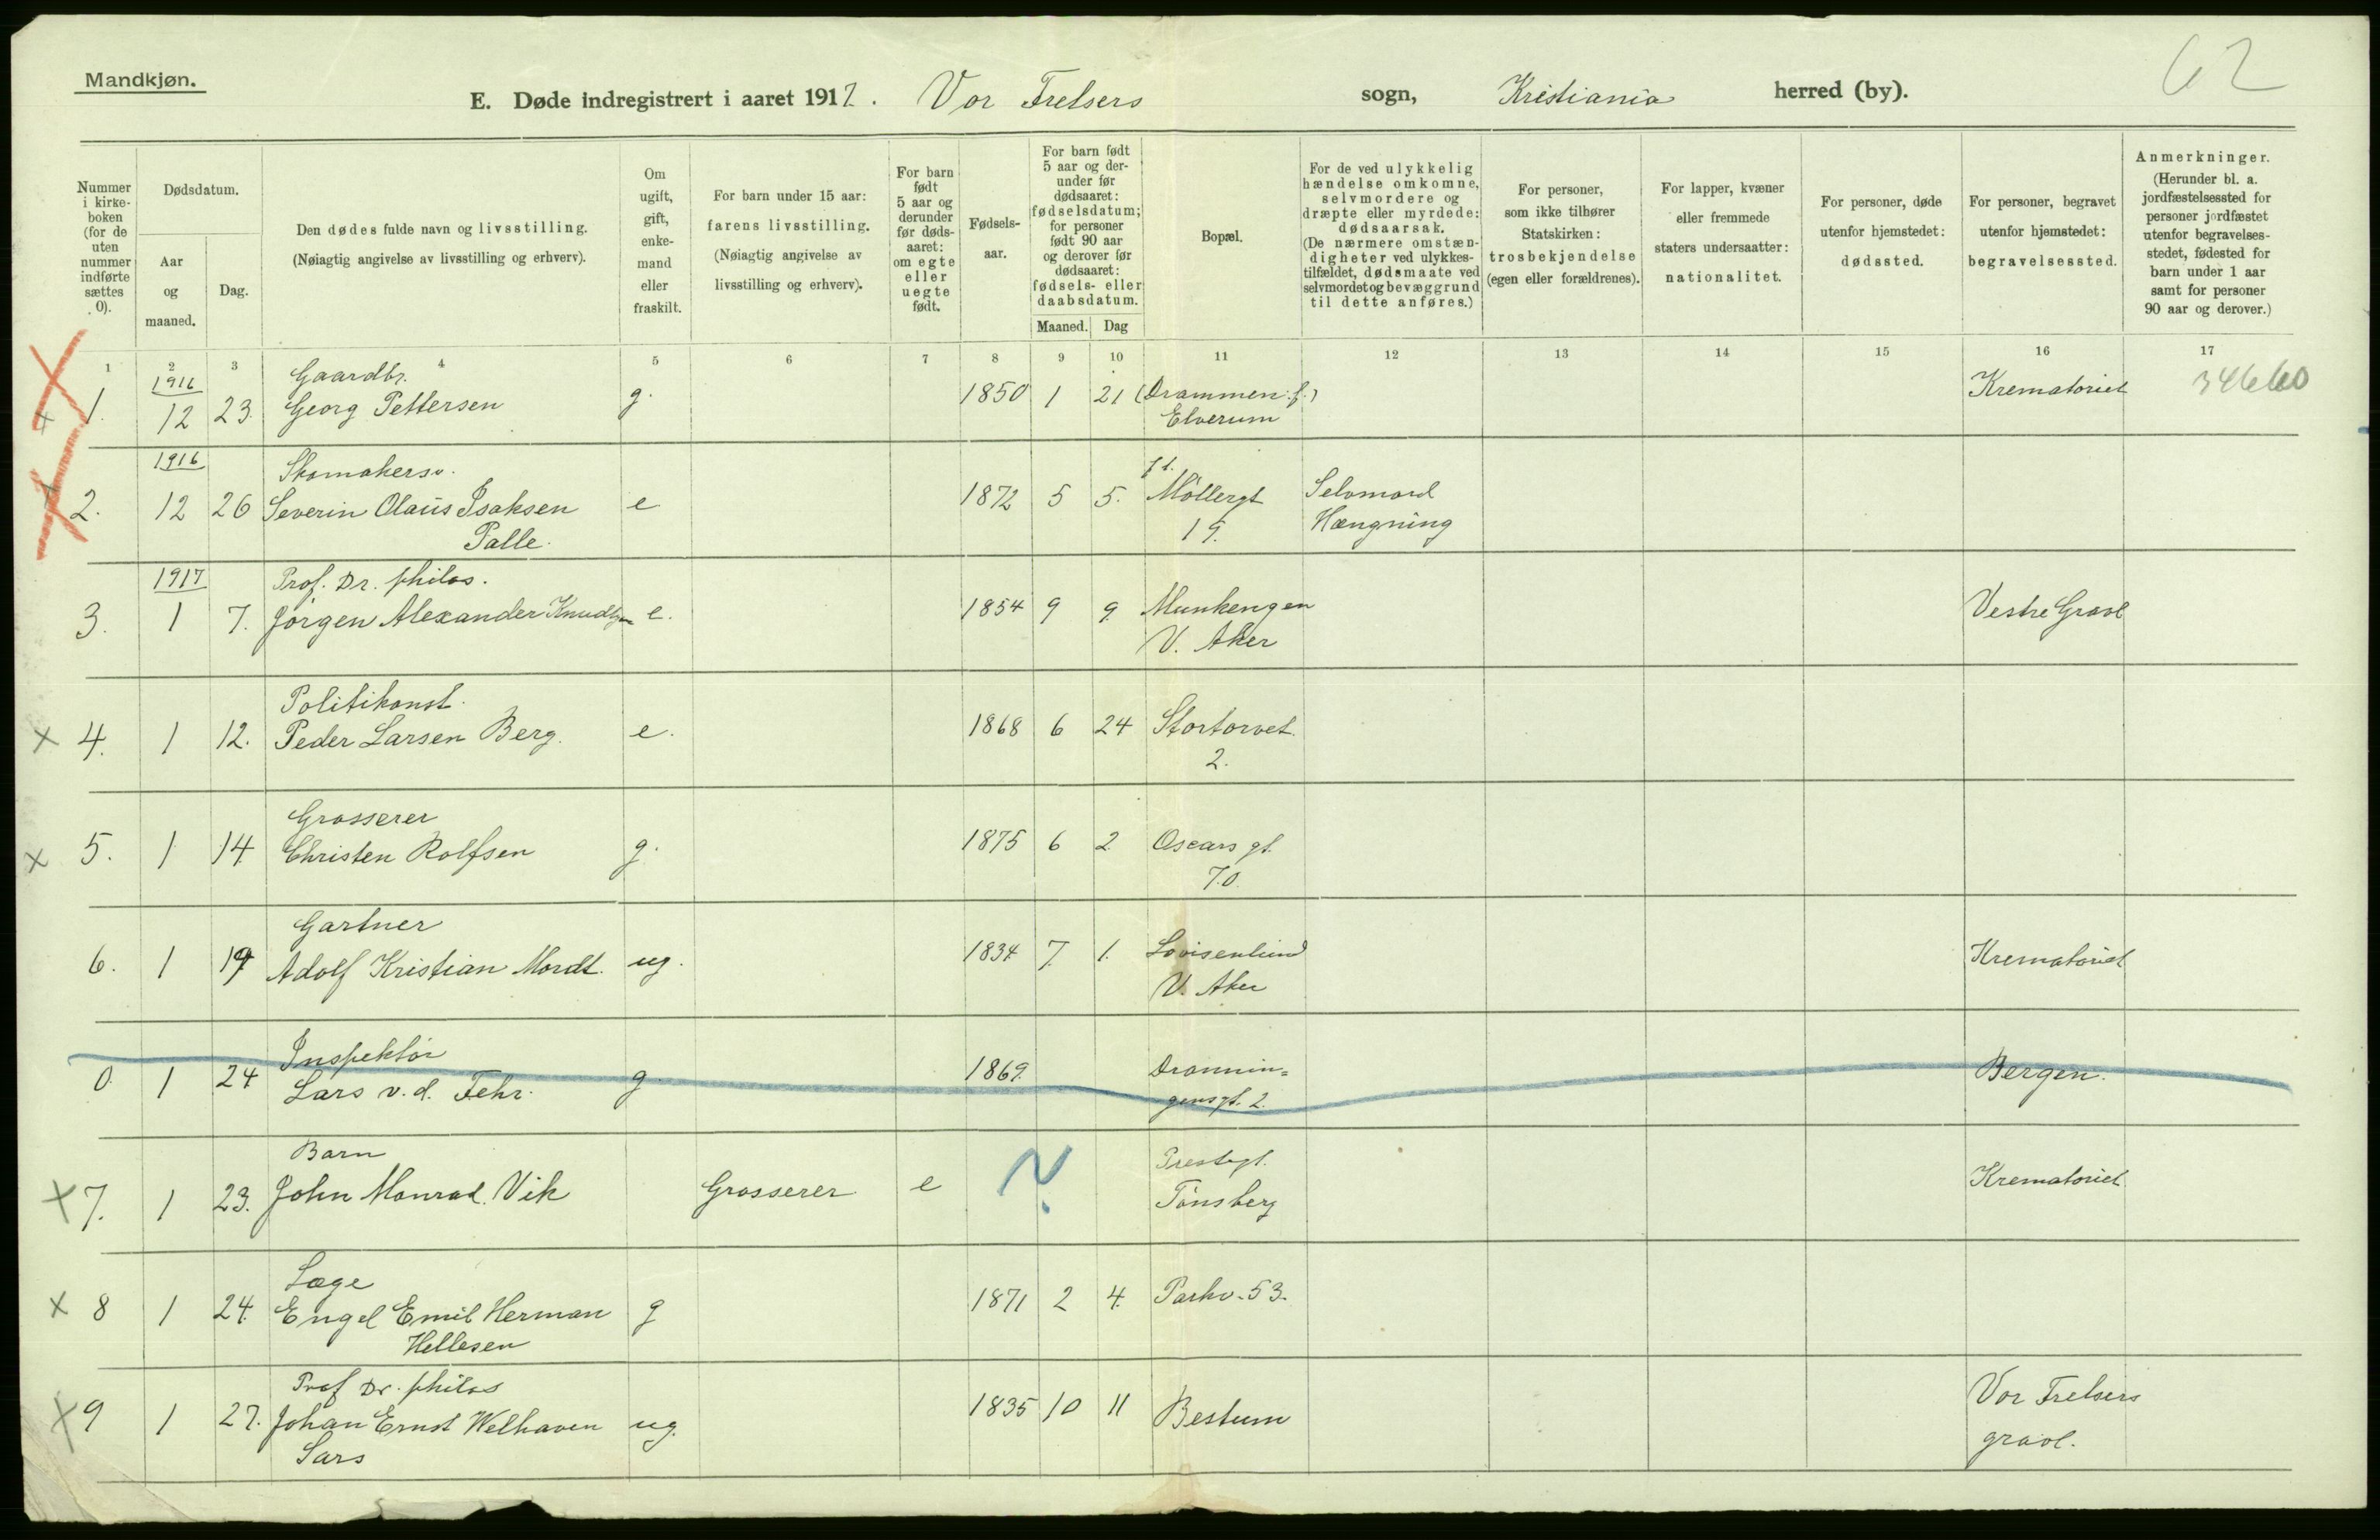 62
Mandkjøn.
E. Døde indregistrert i aaret 1917. Vor Frelsers sogn, Kristiania herred (by).
Nummer i kirke-boken (for de uten nummer indførte sættes 0).
Dødsdatum.
Aar og maaned.
Dag.
Den dødes fulde navn og livsstilling.
(Nøiagtig angivelse av livsstilling og erhverv).
Om ugift, gift, enke-mand eller fraskilt.
For barn under 15 aar:
farens livsstilling.
(Nøiagtig angivelse av livsstilling og erhverv).
For barn født 5 aar og derunder før døds-aaret: om egte eller uegte født.
Fødsels-aar.
For barn født 5 aar og der-under før dødsaaret: fødselsdatum; for personer født 90 aar og derover før dødsaaret: fødsels- eller daabsdatum.
Maaned. Dag
Bopæl.
For de ved ulykkelig hændelse omkomne, selvmordere og dræpte eller myrdede: dødsaarsak.
(De nærmere omstæn-digheter ved ulykkes-tilfældet, dødsmaate ved selvmordet og bevæggrund til dette anføres.)
For personer, som ikke tilhører Statskirken: trosbekjendelse (egen eller forældrenes).
For lapper, kvæner eller fremmede staters undersaatter: nationalitet.
For personer, døde utenfor hjemstedet: dødssted.
For personer, begravet utenfor hjemstedet: begravelsessted.
Anmerkninger.
(Herunder bl. a. jordfæstelsessted for personer jordfæstet utenfor begravelses-stedet, fødested for barn under 1 aar samt for personer 90 aar og derover.)
1 2 3 4 5 6 7 8 9 10 11 12 13 14 15 16 17
1916 Gaardbr.
x 1. 12 23. Georg Pettersen g. 1850 1 21 (Drammen f.) Krematoriet 34660
Elverum
1916 Skomakersv.
2. 12 26 Severin Olaus Isaksen e 1872 5 5. Möllergt Selvmord
Palle. 19. Hængning
1917 Prof. Dr. philos.
3. 1 7. Jörgen Alexander Knudtzon e. 1854 9 9. Munkengen Vestre Gravl
V. Aker
Politikonst.
x 4. 1 12. Peder Larsen Berg. e. 1868 6 24 Stortorvet.
2.
Grosserer
x 5. 1 14 Christen Rolfsen g. 1875 6 2 Oscars gt.
70.
Gartner
6. 1 19 Adolf Kristian Mordt. ug. 1834 7. 1. Lovisenlund Krematoriet
V. Aker
Inspektör
0. 1 24 Lars v.d. Fehr. g. 1869. Dronnin= Bergen.
gensgt. 2.
Barn Prestegt.
x 7. 1 23. John Monrad Vik Grosserer e ? Tönsberg Krematoriet
Læge
x 8 1 24. Engel Emil Herman g 1871 2 4. Parkv. 53.
Hellesen
Prof Dr. philos
x 9 1 27. Johan Ernst Welhaven ug. 1835 10 11 Bestum Vor Frelsers
Sars gravl.